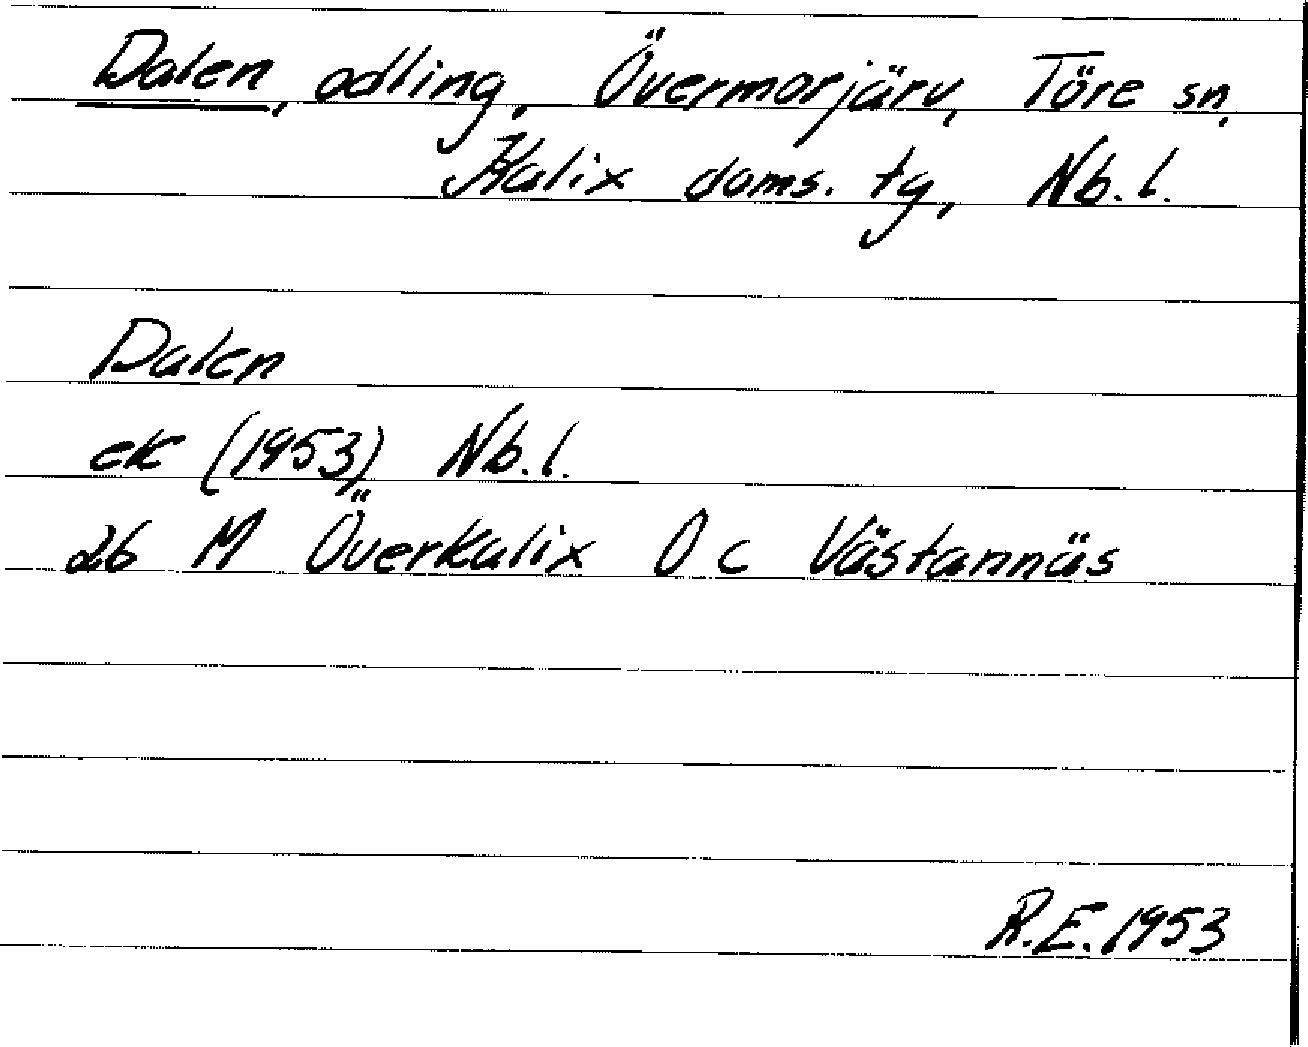 Dalen, odling, Övermorjärv, Töre sn,
Kalix doms. tg, Nb. l.
Dalen
ek (1953) Nb. l.
26 M Överkalix O c Västannäs
R.E. 1953